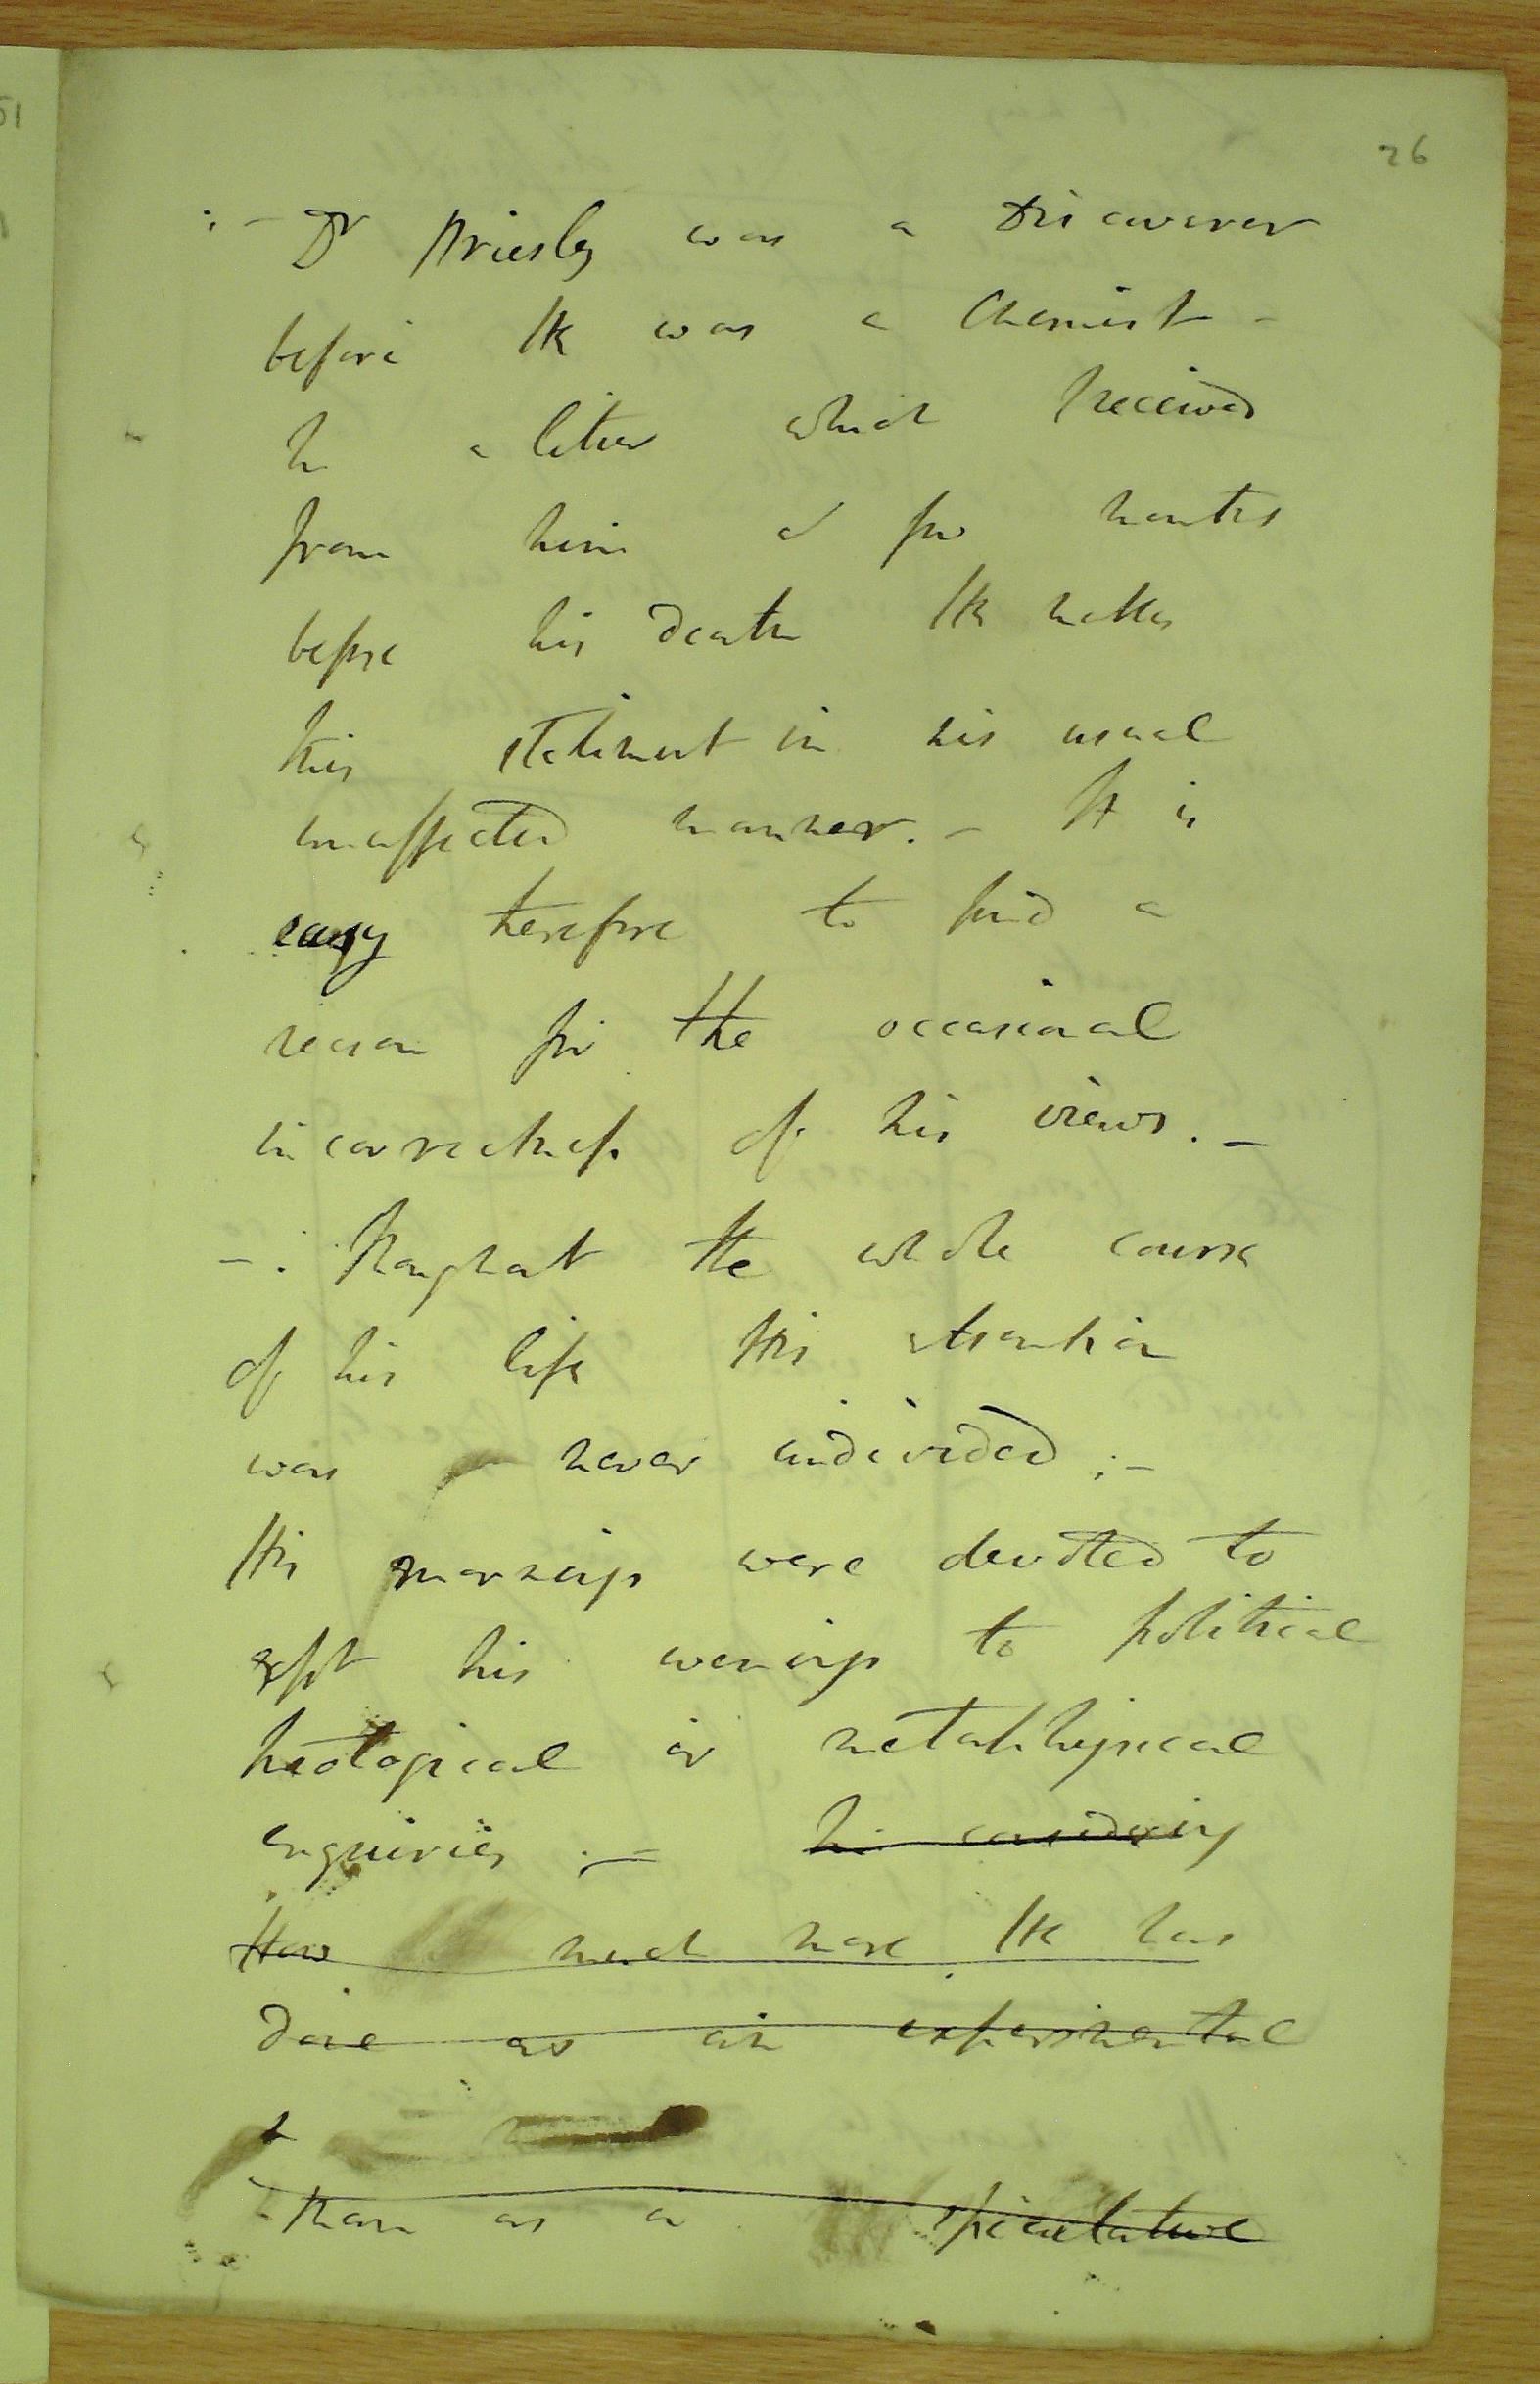 26
:- Dr Priesly was a Discoverer
before He was a Chemist -
In a letter which I received
from him a few months
before his death He makes
this statement in his usual
unaffected manner. - It is
easy therefore to find a
reason for the occasional
incorrectness of his views. -
-: Throughout the whole course
of his life His attention
was never undivided ;-
His mornings were devoted to
expt his evenings to political
theological or metaphysical
enquiries :- In considering
How much more He has
done as an experimental
than as a speculative